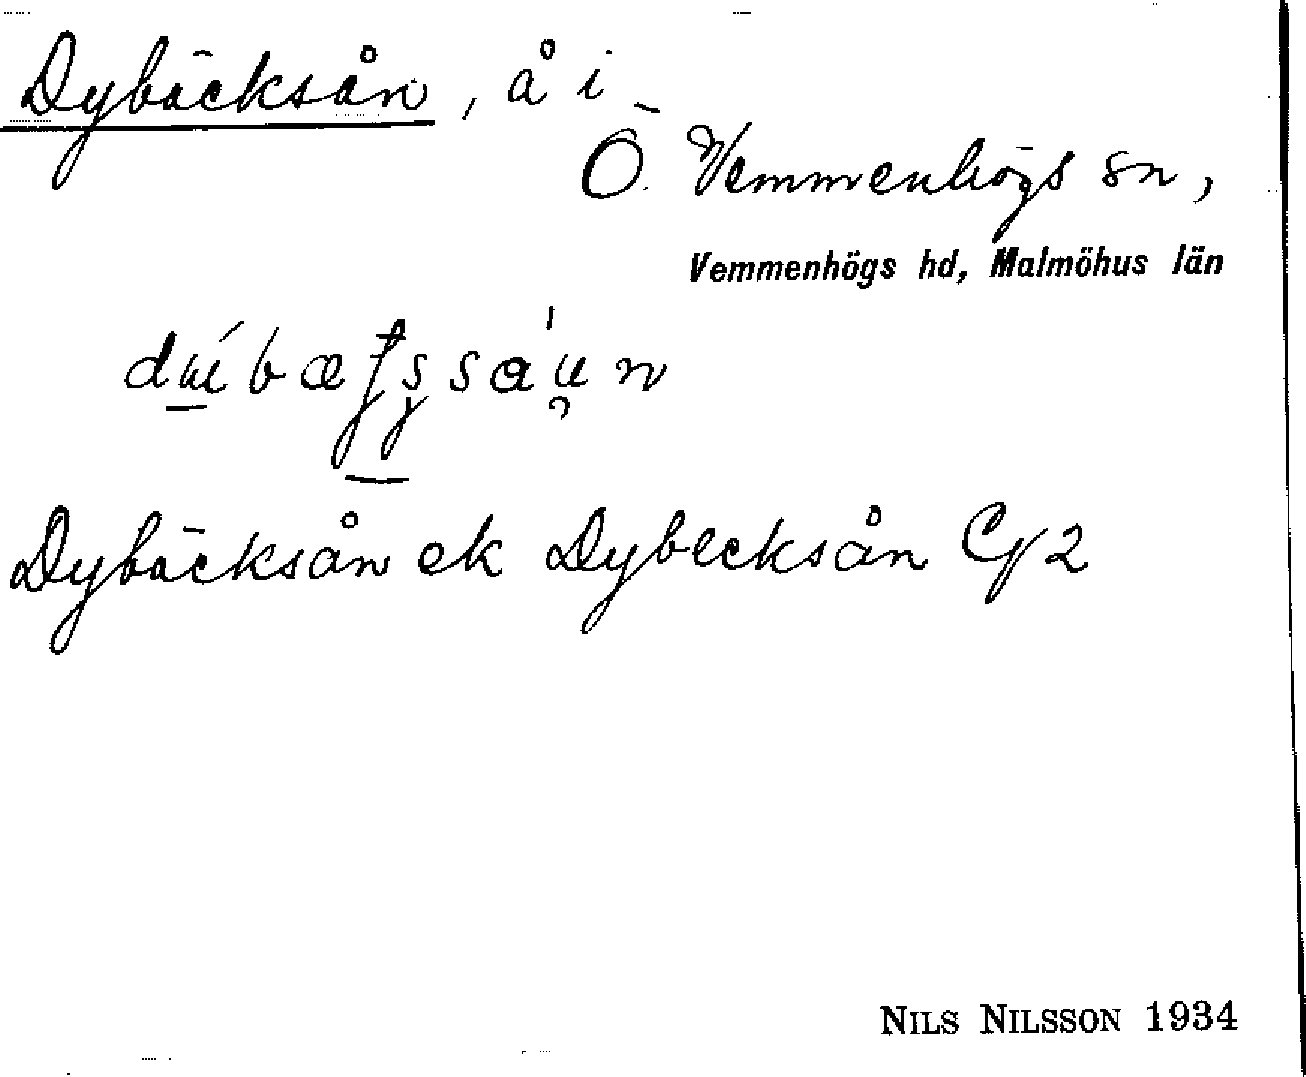 Dybäcksån, å i
Ö. Vemmenhögs sn,
Vemmenhögs hd, Malmöhus län
Dybäcksån ek Dybecksån
NILS NILSSON 1934